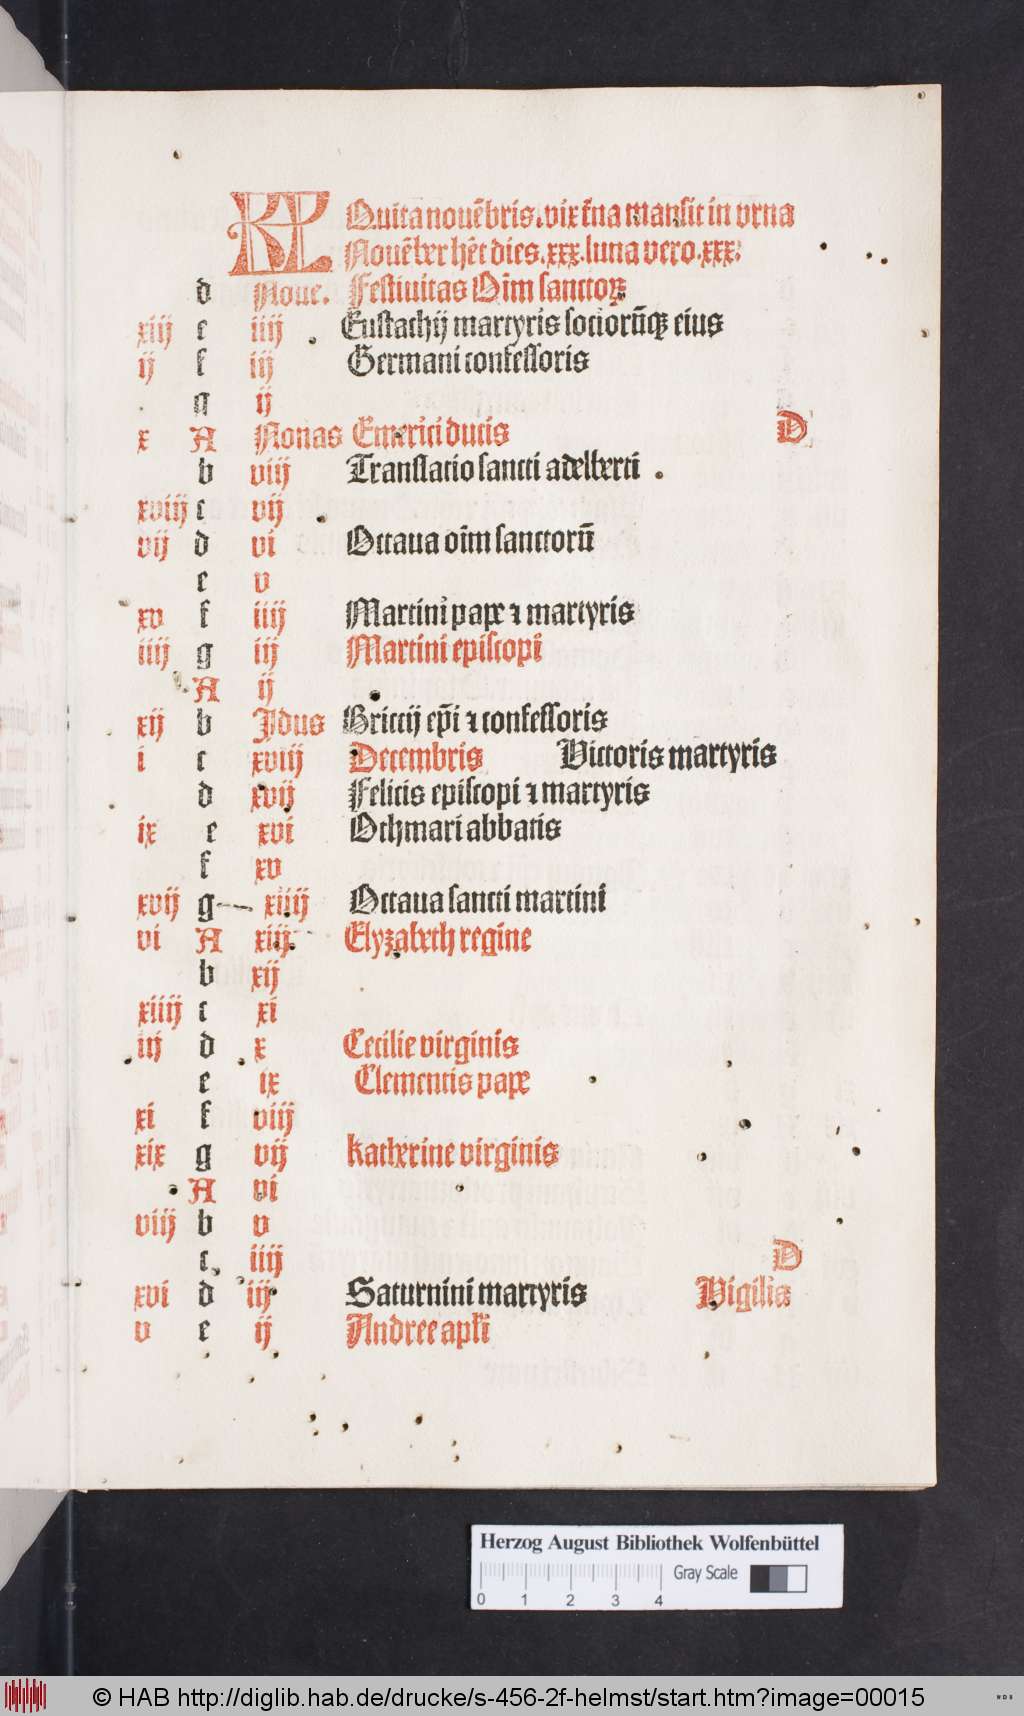 KL Quitanouēbris.vix t̄na mansit in vrna
Nouēber hēt dies.xxx.luna vero.xxx:
d Noue. Festiuitas Oīm sanctoꝝ
xiij e iiij Eustachij martyris socioruꝫq̄ eius
ij f iij Germani confessoris
g ij
x A Nonas Emerici ducis D
b viij Translatio sancti adelberti .
xviij c vij
vij d vi Octaua oīm sanctorū
e v
xv f iiij Martini pape ⁊ martyris
iiij g iij Martini episcopi
A ij
xij b Jdus Briccij ep̄i ⁊ confessoris
i c xviij Decembris Victoris martyris
d xvij Felicis episcopi ⁊ martyris
ix e xvi Othmari abbatis
f xv
xvij g xiiij Octaua sancti martini
vi A xiij Elyzabeth regine
b xij
xiiij c xi
iij d x Cecilie virginis
e ix Clementis pape
xi f viij
xix g vij katherine virginis
A vi
viij b v
c iiij D
xvi d iij Saturnini martyris Vigilia
v e ij Andree apłi
Herzog August Bibliothek Wolfenbüttel
Gray Scale
0 1 2 3 4
© HAB http://diglib.hab.de/drucke/s-456-2f-helmst/start.htm?image=00015